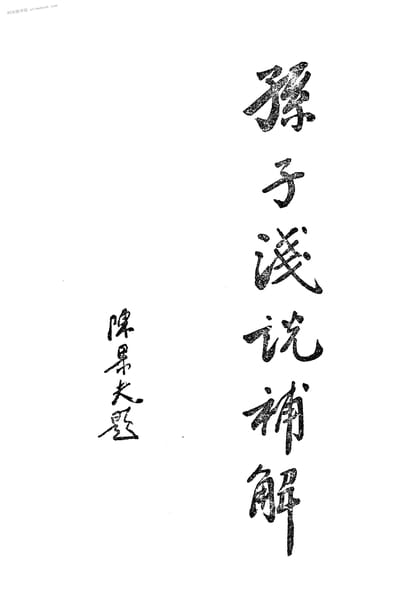 孫子淺說補解
陳果夫題